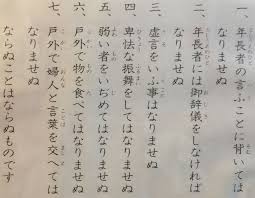 一、年長者の言ふことに背いては
なりませぬ
二、年長者には御辞儀をしなければ
なりませぬ
三、虚言をいふ事はなりませぬ
四、卑怯な振舞をしてはなりませぬ
五、弱い者をいぢめてはなりませぬ
六、戸外で物を食べてはなりませぬ
七、戸外で婦人と言葉を交へては
なりませぬ
ならぬことはならぬものです